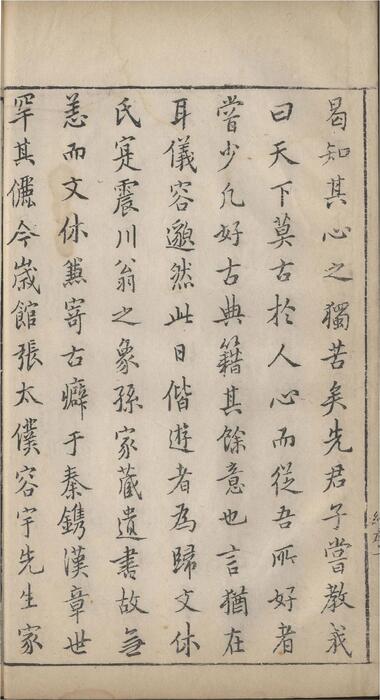 曷知其心之獨苦矣先君子嘗教我
曰天下莫古於人心而從吾所好者
嘗少凡好古典籍其餘意也言猶在
耳儀容邈然此日偕遊者為歸文休
氏寔震川翁之象孫家藏遺書故無
恙而文休兼寄古癖于秦鐫漢章世
罕其儷今嵗館張太僕容宇先生家